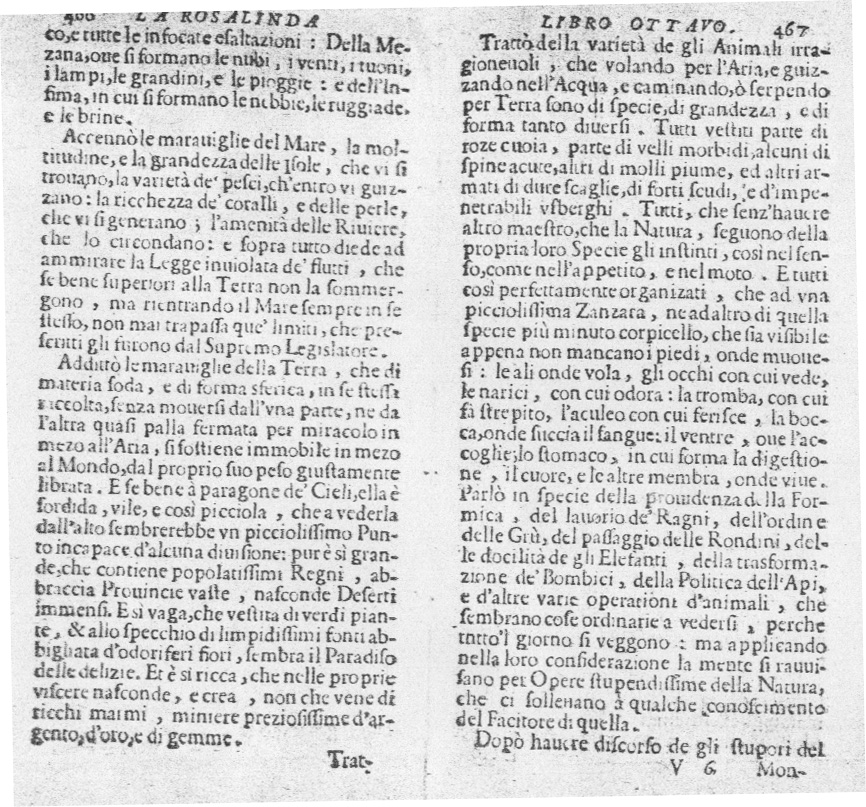 466 LA ROSALINDA
co,e tutte le infocate esaltazioni : Della Me-
zana,oue si formano le nubi, i venti, i tuoni,
i lampi,le grandini, e le pioggie : e dell'In-
fima, in cui si formano le nebbie, le ruggiade,
e le brine.
Accennò le marauiglie del Mare, la mol-
titudine, e la grandezza delle Isole, che vi si
trouano, la varietà de' pesci, ch'entro vi guiz-
zano : la ricchezza de' coralli, e delle perle,
che vi si generano ; l'amenità delle Riuiere,
che lo circondano: e sopra tutto diede ad
ammirare la Legge inuiolata de' flutti, che
se bene superiori alla Terra non la sommer-
gono, ma rientrando il Mare sempre in se
stesso, non mai trapassa que' limiti, che pre-
scritti gli furono dal Supremo Legislatore.
Additò le marauiglie della Terra, che di
materia soda, e di forma sferica, in se stessa
raccolta, senza mouersi dall'vna parte, ne da
l'altra quasi palla fermata per miracolo in
mezo all'Aria, si sostiene immobile in mezo
al Mondo, dal proprio suo peso giustamente
librata. E se bene à paragone de' Cieli, ella è
sordida, vile, e così picciola, che a vederla
dall'alto sembrerebbe vn picciolissimo Pun-
to incapace d'alcuna diuisione: pur è sì gran-
de, che contiene popolatissimi Regni, ab-
braccia Prouincie vaste, nasconde Deserti
immensi. E sì vaga, che vestita di verdi pian-
te, & allo specchio di limpidissimi fonti ab-
bigliata d'odoriferi fiori, sembra il Paradiso
delle delizie. Et è sì ricca, che nelle proprie
viscere nasconde, e crea, non che vene di
ricchi marmi, miniere preziosissime d'ar-
gento, d'oro, e di gemme.
Trat-
LIBRO OTTAVO. 467
Trattò della varietà de gli Animali irra-
gioneuoli, che volando per l'Aria, e guiz-
zando nell'Acqua, e caminando, ò serpendo
per Terra sono di specie, di grandezza, e di
forma tanto diuersi. Tutti vestiti parte di
roze cuoia, parte di velli morbidi, alcuni di
spine acute, altri di molli piume, ed altri ar-
mati di dure scaglie, di forti scudi, e d'impe-
netrabili vsberghi. Tutti, che senz'hauere
altro maestro, che la Natura, seguono della
propria loro Specie gli instinti, così nel sen-
so, come nell'appetito, e nel moto. E tutti
così perfettamente organizati, che ad vna
picciolissima Zanzara, ne ad altro di quella
specie più minuto corpicello, che sia visibile
appena non mancano i piedi, onde muoue-
si : le ali onde vola, gli occhi con cui vede,
le narici, con cui odora : la tromba, con cui
fà strepito, l'aculeo con cui ferisce, la boc-
ca, onde succia il sangue: il ventre, oue l'ac-
coglie; lo stomaco, in cui forma la digestio-
ne, il cuore, e le altre membra, onde viue.
Parlò in specie della prouidenza della For-
mica, del lauorio de' Ragni, dell'ordine
delle Grù, del passaggio delle Rondini, del-
le docilità de gli Elefanti, della trasforma-
zione de' Bombici, della Politica dell'Api,
e d'altre varie operationi d'animali, che
sembrano cose ordinarie a vedersi, perche
tutto'l giorno si veggono : ma applicando
nella loro considerazione la mente si raui-
sano per Opere stupendissime della Natura,
che ci solleuano à qualche conoscimento
del Facitore di quella.
Dopò hauere discorso de gli stupori del
V 6. Mon-